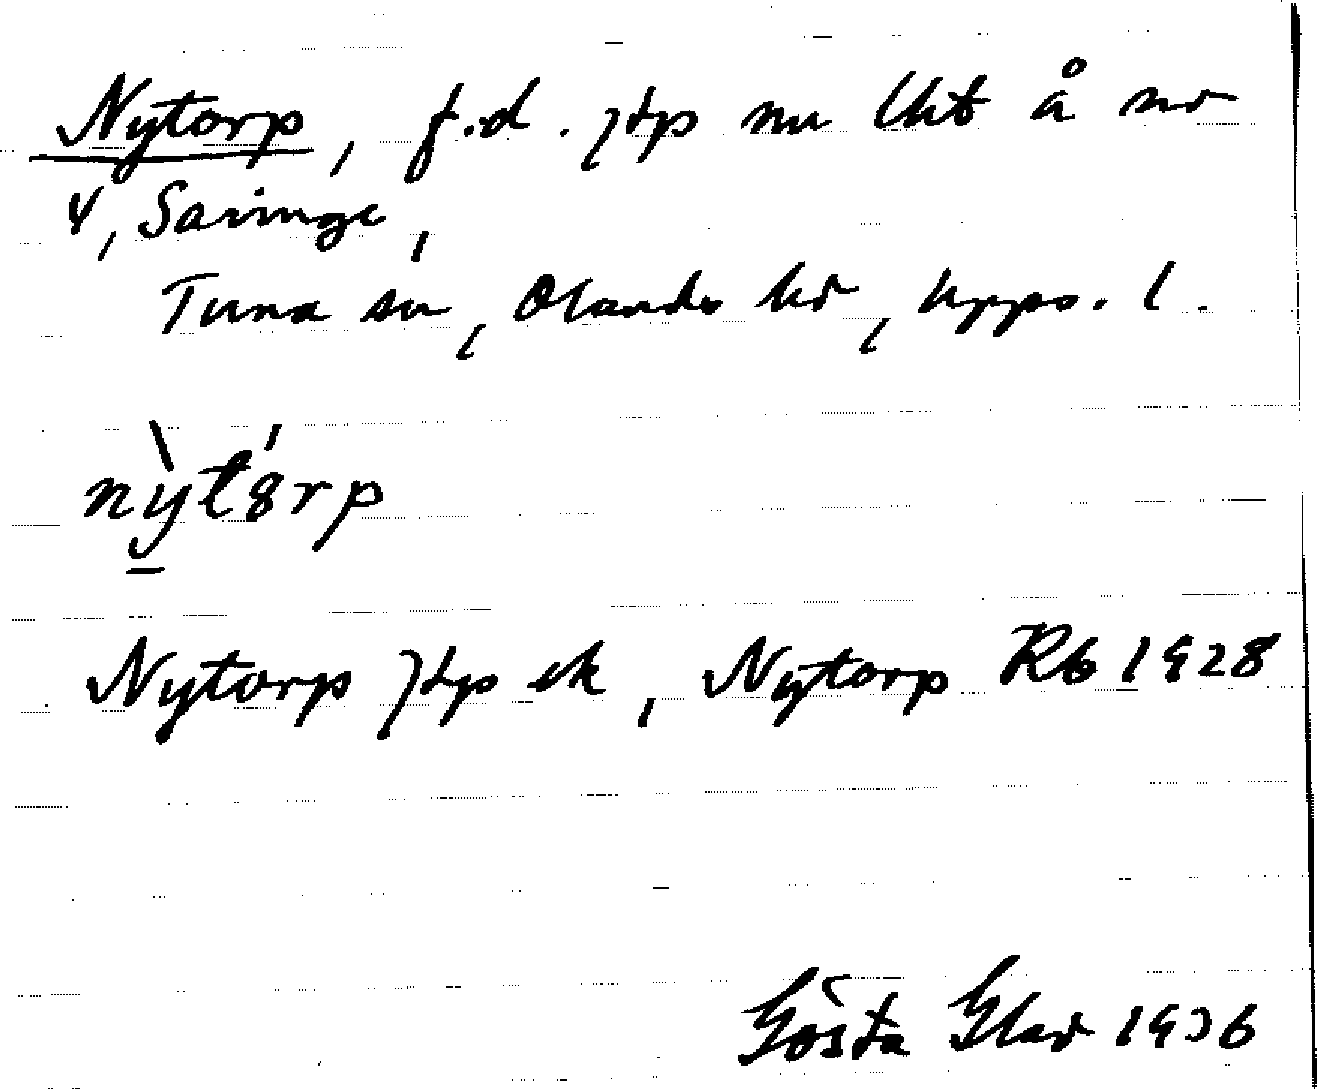 Nytorp, f.d. jtp nu lht å nr
4, Saringe,
Tuna sn, Olands hd, Upps. l.
nỳtǿrp
Nytorp jtp ek, Nytorp Rb 1928
Gösta 1936